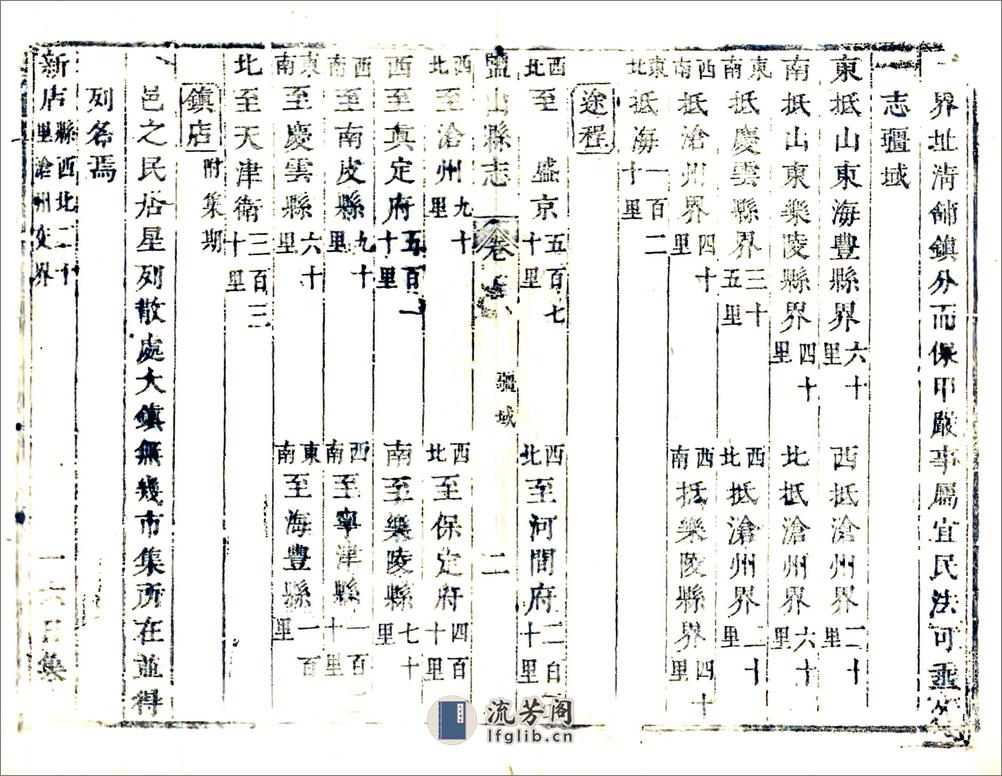 界址淸舖鎮分而保甲嚴事屬宜民法可垂
志疆域
東抵山東海豐縣界六十里 西抵滄州界二十里
南抵山東樂陵縣界四十里 北抵滄州界六十里
東南抵慶雲縣界三十五里 西北抵滄州界二十里
西南抵滄州界四十里 西南抵樂陵縣界四十里
東北抵海一百二十里
途程
西北至 盛京五百七十里 西北至河間府二百 十里
鹽山縣志 卷 疆域 二
西北至滄州九十里 西北至保定府四百十里
西至真定府五百一十里 南至樂陵縣七十里
西南至南皮縣九十里 西南至寧津縣一百十里
東南至慶雲縣六十里 東南至海豊縣一百里
北至天津衛三百三十里
鎮店 附集期
邑之民居星列散處大鎮無幾市集所在並得
列名焉
新店縣西北二十里滄州交界 一六日集
流芳阁
lfglib.cn